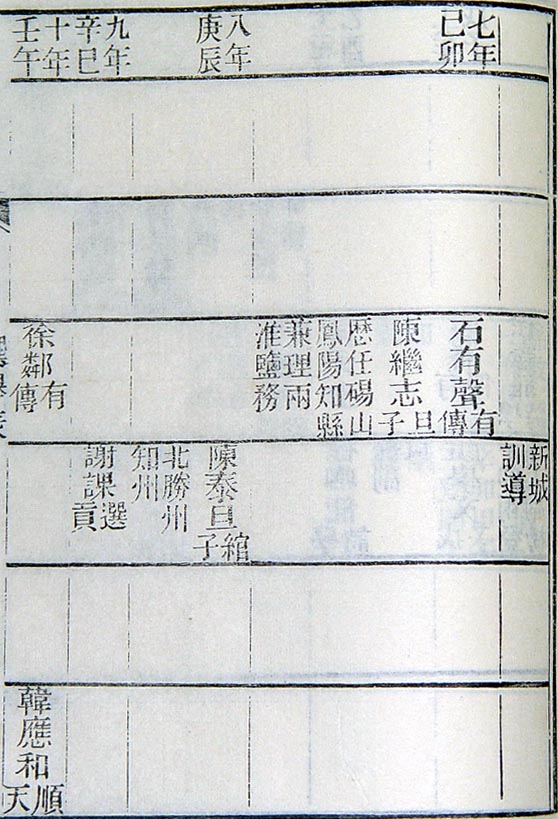 七年
己卯
八年
庚辰
九年
辛巳
十年
壬午
石有聲有傳
陳繼志旦子
歷任碭山
鳳陽知縣
兼理兩
淮鹽務
徐鄰有傳
新城
訓導
陳泰旦綰子
北勝州
知州
謝課選貢
韓應和順天